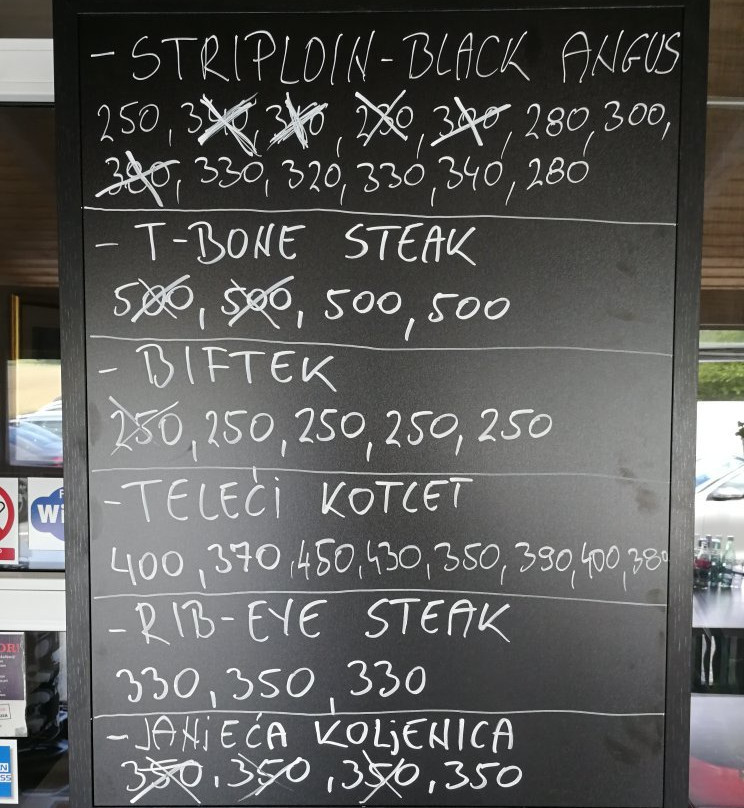 - STRIPLOIN-BLACK ANGUS
250, 340, 340, 280, 300, 280, 300,
380, 330, 320, 330, 340, 280
- T-BONE STEAK
500, 500, 500, 500
- BIFTEK
250, 250, 250, 250, 250
- TELEĆI KOTLET
400, 370, 450, 430, 350, 390, 400, 380
- RIB-EYE STEAK
330, 350, 330
- JANJEĆA KOLJENICA
350, 350, 350, 350
Wi